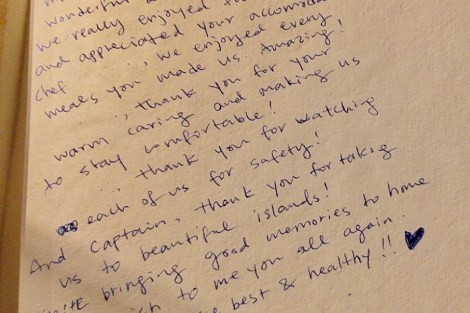 wonderful
we really enjoyed
and appreciated your accomoda
chef , we enjoyed every
meals you made us. Amazing!
, thank you for your
warm caring and making us
to stay comfortable!
, thank you for watching
each of us for safety!
And Captain, thank you for takig
us to beautiful islands!
bringing good memories to home
to me you all again.
best & healthy!!